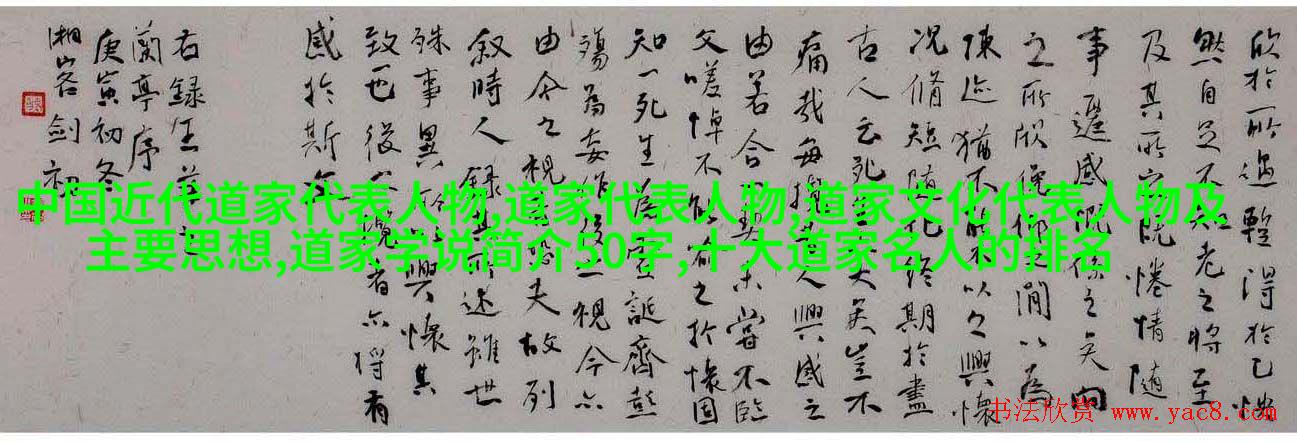 欣於所遇蹔得於己快
然自足不知老之將至
及其所之既惓情隨
事遷感慨係之矣向
之所欣俛仰之間以為
陳迹猶不能不以之興懷
況脩短隨化終期於盡
古人云死生亦大矣豈不
痛哉每攬昔人興感之
由若合一契未嘗不臨
文嗟悼不能喻之於懷固
知一死生為虛誕齊彭
殤為妄作後之視今亦
由今之視昔悲夫故列
敘時人錄其所述雖世
殊事異所以興懷其
致一也後之攬者亦將有
感於斯文
右錄王羲之
蘭亭序
庚寅初冬
湘客劍初
中国近代道家代表人物,道家代表人物,道家文化代表人物及
主要思想,道家学说简介50字,十大道家名人的排名
书法欣赏 www.yac8.com